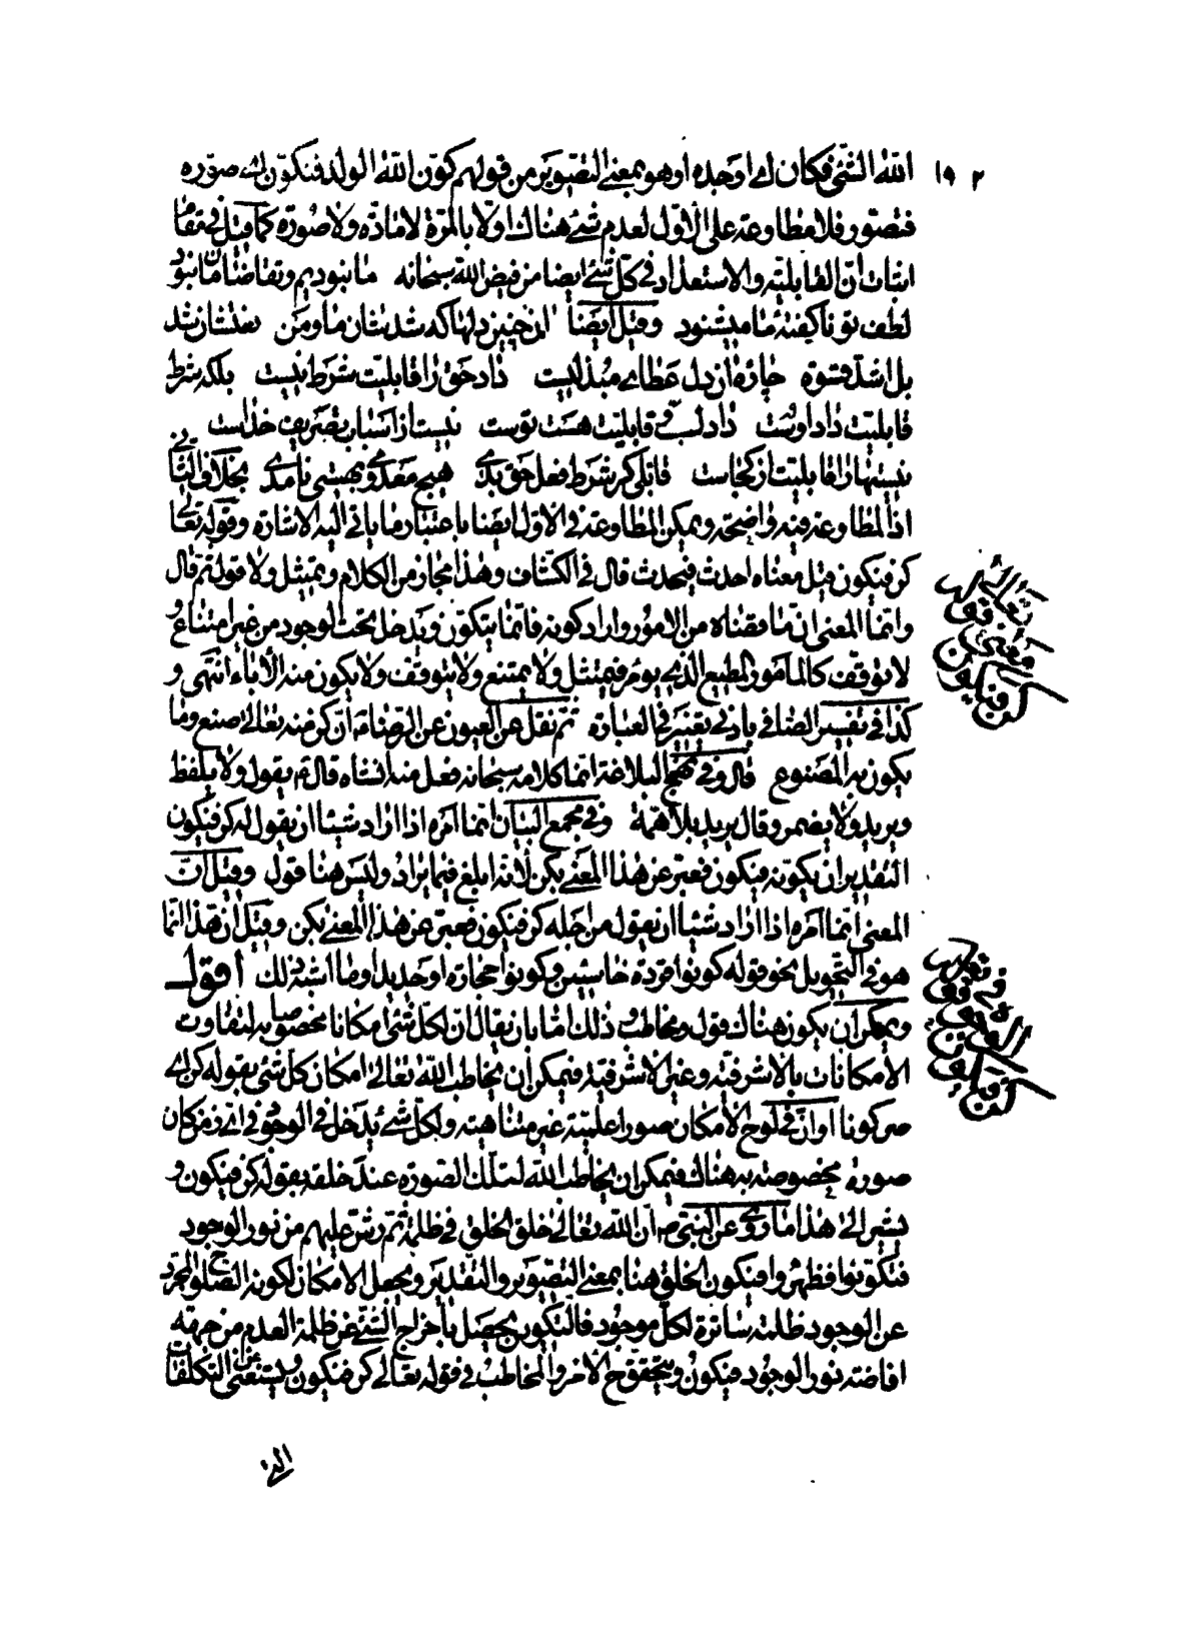 ١٩٢
الله الشئ فكان اى اوجده او هو بمعنى التصوير من قولهم كوّن الله الولد فتكوّن اى صوّره
فتصور فلا مطاوعة على الاول لعدم شئ هناك اولا بالمرة لا مادّة ولا صورة كما قيل فى مقام
اثبات ان القابلية والاستعداد فى كل شئ ايضا من فيض الله سبحانه ما نبوديم وتقاضامان نبود
لطف تو ناكفتهٔ ما ميشنود وقيل ايضا اين چنين دلها كه شد شان ما و من نعتشان شد
بل اشد قسوة چاره آن دل عطاى مبدليست داد حق را قابليت شرط نيست بلكه شرط
قابليت داد اوست داد لب قابليت هست پوست نيست از اسباب تصريف خداست
نيستها را قابليت از كجاست قابلى كر شرط فعل حق بدى هيچ معدومى بهستى نامدى بخلاف الثانى
اذ المطاوعة فيه واضحة ويمكن المطاوعة فى الاول ايضا باعتبار ما ياتى اليه الاشارة وقوله تعالى
كن فيكون قيل معناه احدث فيحدث قال فى الكشاف وهذا مجاز من الكلام وتمثيل ولا قول ثم قال
وانما المعنى ان ما قضاه من الامور واراد كونه فانما يتكوّن ويدخل تحت الوجود من غير امتناع و
لا توقف كالمامور المطيع الذى يؤمر فيمتثل ولا يمتنع ولا يتوقف ولا يكون منه الأباء انتهى و
كذا فى تفسير الصافى بادنى تغيير فى العبارة ثم نقل عن العيون عن الرضا ان كن منه تعالى صنع وما
يكون به المصنوع قال وفى نهج البلاغة انما كلامه سبحانه فعل منه انشاه قال يقول ولا يلفظ
ويريد ولا يضمر وقال يريد بلا همة وفى مجمع البيان انما امره اذا اراد شيئا ان يقول له كن فيكون
التقدير ان يكوّنه فيكون فعبر عن هذا المعنى بكن لانه ابلغ فيما يراد وليس هنا قول وقيل ان
المعنى انما امره اذا اراد شيئا ان يقول من اجله كن فيكون فعبر عن هذا المعنى بكن وقيل ان هذا انما
هو فى التحويل نحو قوله كونوا قردة خاسئين وكونوا حجارة او حديدا وما اشبه ذلك اقول
ويمكن ان يكون هناك قول ومخاطب وذلك اما بان يقال ان لكل شئ امكانا مخصوصا به لتفاوت
الامكانات بالاشرفية وغير الاشرفية فيمكن ان يخاطب الله تعالى امكان كل شئ بقوله كن اى
صر كونا او ان فى لوح الامكان صورا علمية غير متناهية ولكل شئ يدخل فى الوجود فى اى زمن كان
صورة مخصوصة به هناك فيمكن ان يخاطب الله لتلك الصورة عند خلقه بقوله كن فيكون و
يشير الى هذا ما روى عن النبى ص ان الله تعالى خلق الخلق فى ظلمة ثم رش عليهم من نور الوجود
فتكوّنوا فظهروا فيكون الخلق هنا بمعنى التصوير والتقدير ويجعل الامكان لكونه الصلوح المجرد
عن الوجود ظلمة ساترة لكل موجود فالتكون يحصل باخراج الشئ عن ظلمة العدم من جهة
افاضة نور الوجود فيكون ويتحقق ح الامر والمخاطب فى قوله تعالى كن فيكون ويستغنى عن التكلفات
كن فيكون
كن فيكون